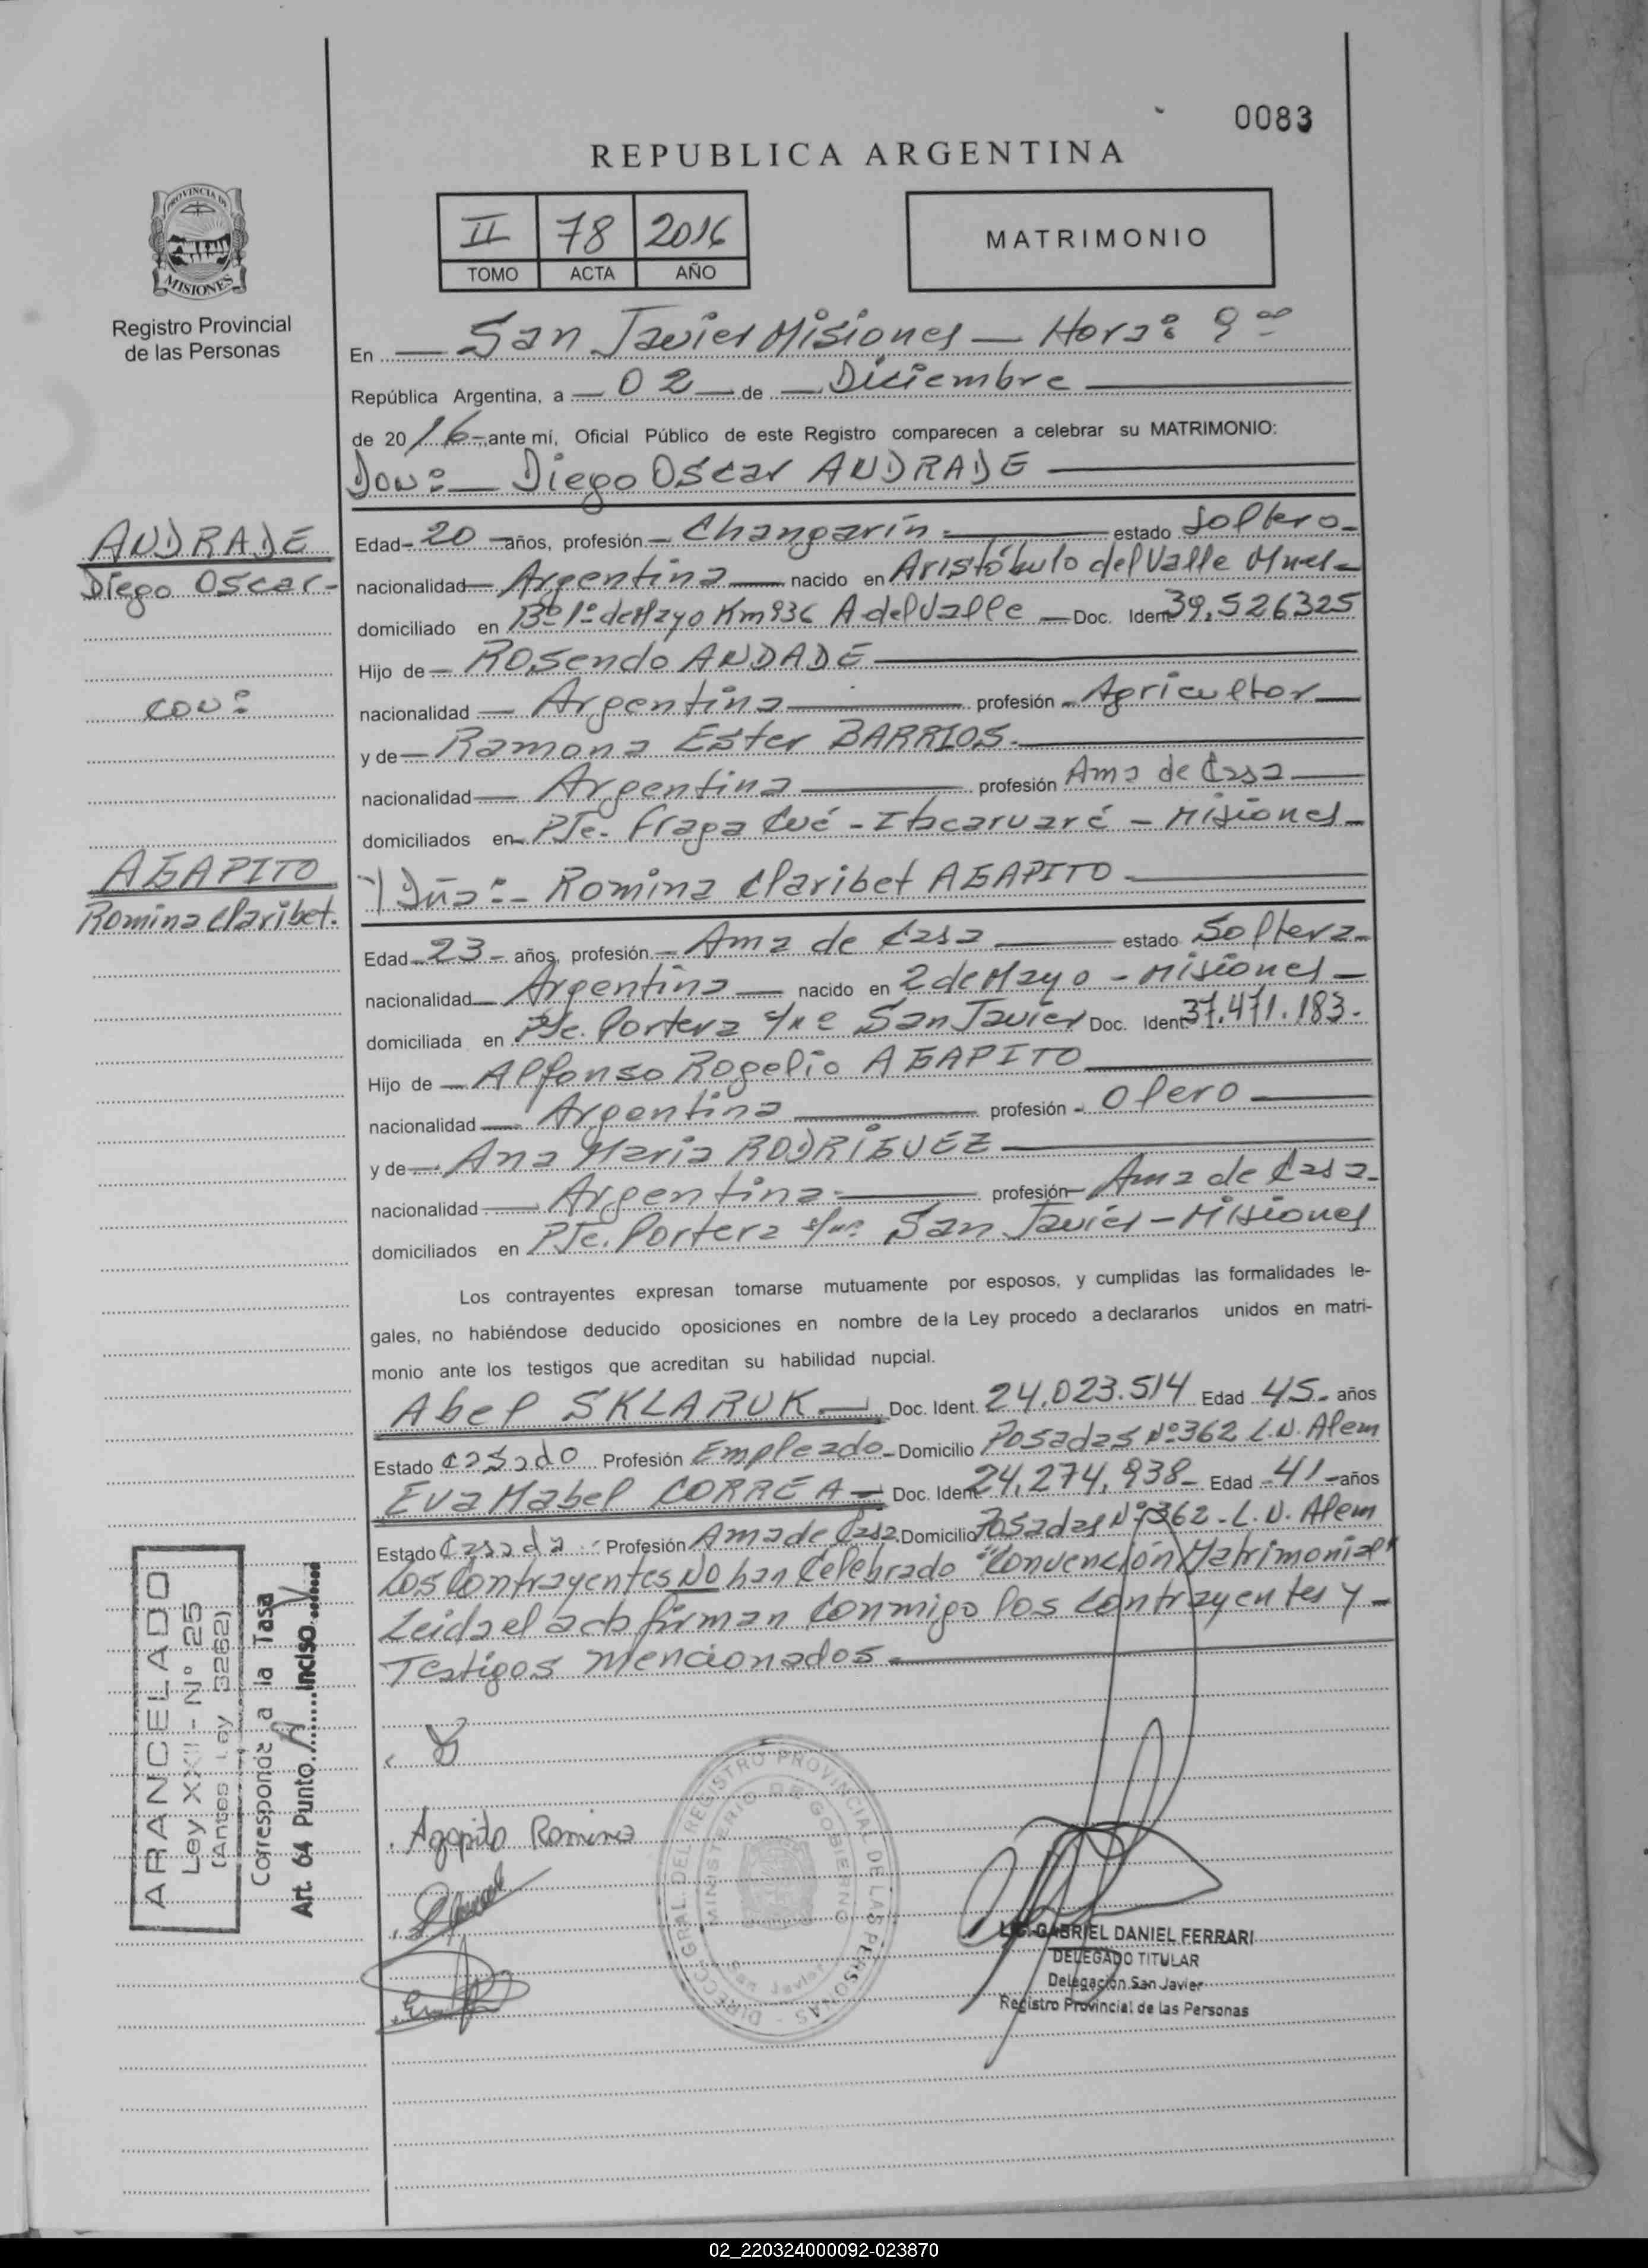 0083
REPUBLICA ARGENTINA
PROVINCIA DE
MISIONES
Registro Provincial
de las Personas
II 78 2016
TOMO ACTA AÑO
MATRIMONIO
En — San Javier Misiones — Hora: 9 00
República Argentina, a — 02 — de — Diciembre
de 2016-, ante mí, Oficial Público de este Registro comparecen a celebrar su MATRIMONIO:
Don: — Diego Oscar ANDRADE
ANDRADE
Diego Oscar-
con:
AGAPITO
Romina Claribet.
Edad- 20 - años, profesión - Changarín - estado Soltero-
nacionalidad - Argentina - nacido en Aristóbulo del Valle Mnes-
domiciliado en Bº 1º de Mayo Km 936 A del Valle - Doc. Ident 39.526325
Hijo de - Rosendo ANDADE
nacionalidad - Argentina profesión - Agricultor
y de - Ramona Ester BARRIOS.
nacionalidad - Argentina profesión Ama de Casa
domiciliados en - Pje. Fraga Cué - Itacaruaré - Misiones-
Y Dña:- Romina Claribet AGAPITO
Edad - 23 - años, profesión - Ama de Casa estado Soltera-
nacionalidad - Argentina - nacido en 2 de Mayo - Misiones -
domiciliada en Pje. Portera San Javier Doc. Ident 37.471.183.
Hijo de - Alfonso Rogelio AGAPITO
nacionalidad - Argentina profesión - Olero
y de - Ana Maria RODRÍGUEZ
nacionalidad - Argentina profesión - Ama de Casa-
domiciliados en Pje. Portera San Javier - Misiones
Los contrayentes expresan tomarse mutuamente por esposos, y cumplidas las formalidades le-
gales, no habiéndose deducido oposiciones en nombre de la Ley procedo a declararlos unidos en matri-
monio ante los testigos que acreditan su habilidad nupcial.
Abel SKLARUK - Doc. Ident. 24.023.514 Edad 45- años
Estado Casado Profesión Empleado - Domicilio Posadas Nº 362 L.N. Alem
Eva Mabel CORREA - Doc. Ident 24.274.938 - Edad - 41 - años
Estado Casada Profesión Ama de Casa Domicilio Posadas Nº 362 - L.N. Alem
Los Contrayentes NO han Celebrado "Convención Matrimonial"
Leida el acta firman conmigo los contrayentes y -
Testigos mencionados.-
ARANCELADO
Ley XXII - Nº 25
(Antes Ley 3262)
Corresponde a la Tasa
Art. 64 Punto A Inciso V
Agapito Romina
DIRECC. GRAL. DEL REGISTRO PROVINCIAL DE LAS PERSONAS
MINISTERIO DE GOBIERNO
San Javier
Lic. GABRIEL DANIEL FERRARI
DELEGADO TITULAR
Delegación San Javier
Registro Provincial de las Personas
02_220324000092-023870